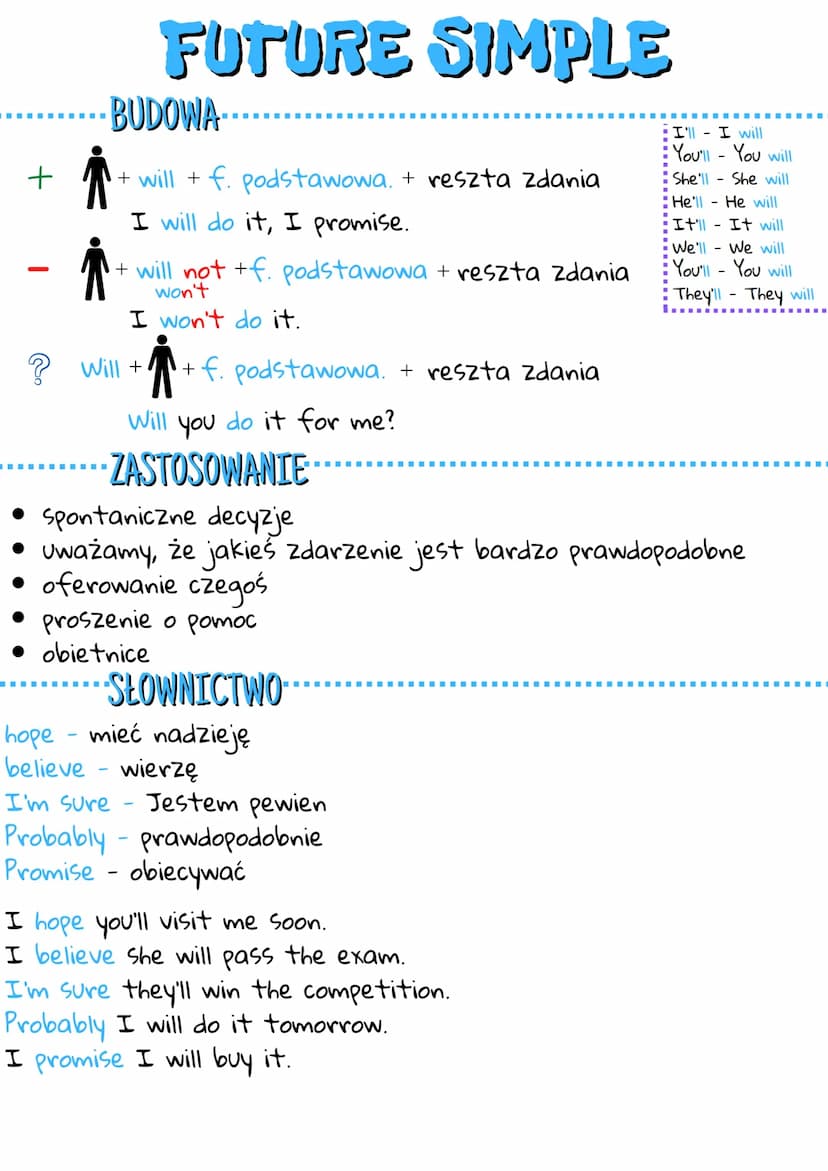 FUTURE SIMPLE
BUDOWA
+ + will + f. podstawowa. + reszta zdania
I will do it, I promise.
- + will not +f. podstawowa + reszta zdania
won't
I won't do it.
? Will + + f. podstawowa. + reszta zdania
Will you do it for me?
I'll - I will
You'll - You will
She'll - She will
He'll - He will
It'll - It will
We'll - We will
You'll - You will
They'll - They will
ZASTOSOWANIE
• spontaniczne decyzje
• uważamy, że jakieś zdarzenie jest bardzo prawdopodobne
• oferowanie czegoś
• proszenie o pomoc
• obietnice
SŁOWNICTWO
hope - mieć nadzieję
believe - wierzę
I'm sure - Jestem pewien
Probably - prawdopodobnie
Promise - obiecywać
I hope you'll visit me soon.
I believe she will pass the exam.
I'm sure they'll win the competition.
Probably I will do it tomorrow.
I promise I will buy it.